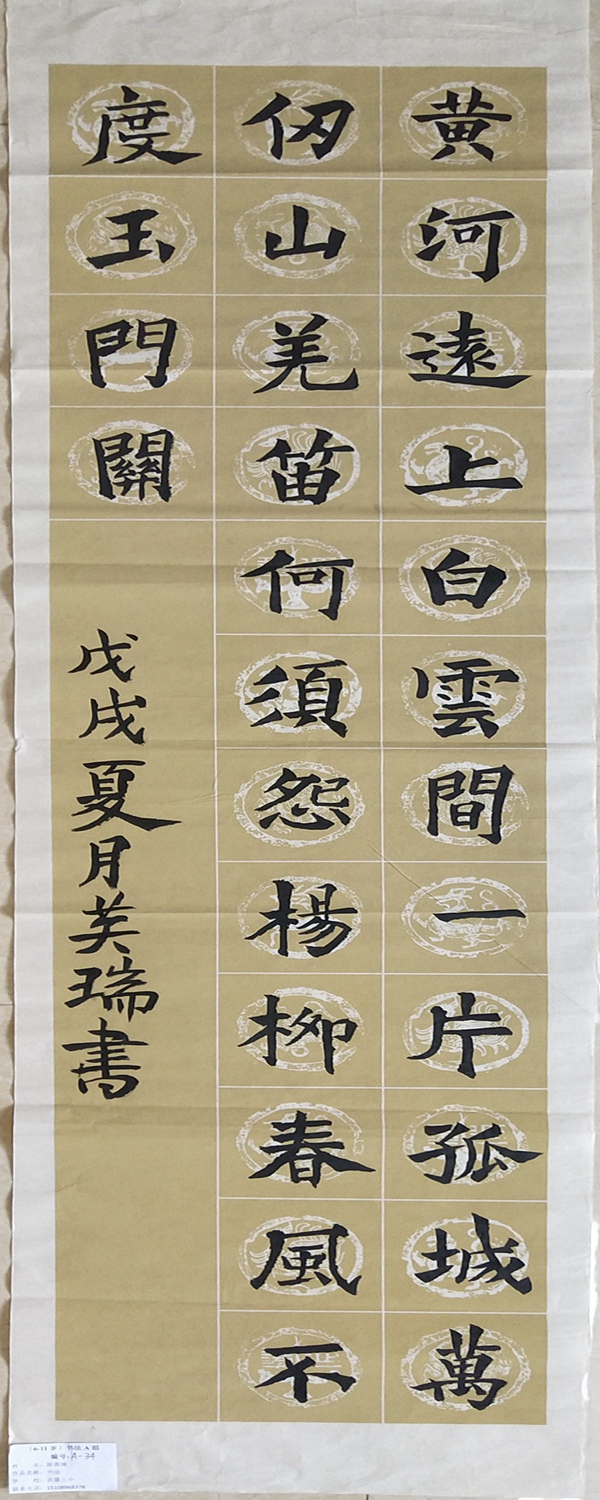 黄河遠上白雲間一片孤城萬
仞山羌笛何須怨楊柳春風不
度玉門關
戊戌夏月芙瑞書
(6-11岁)书法A组
编号:A-34